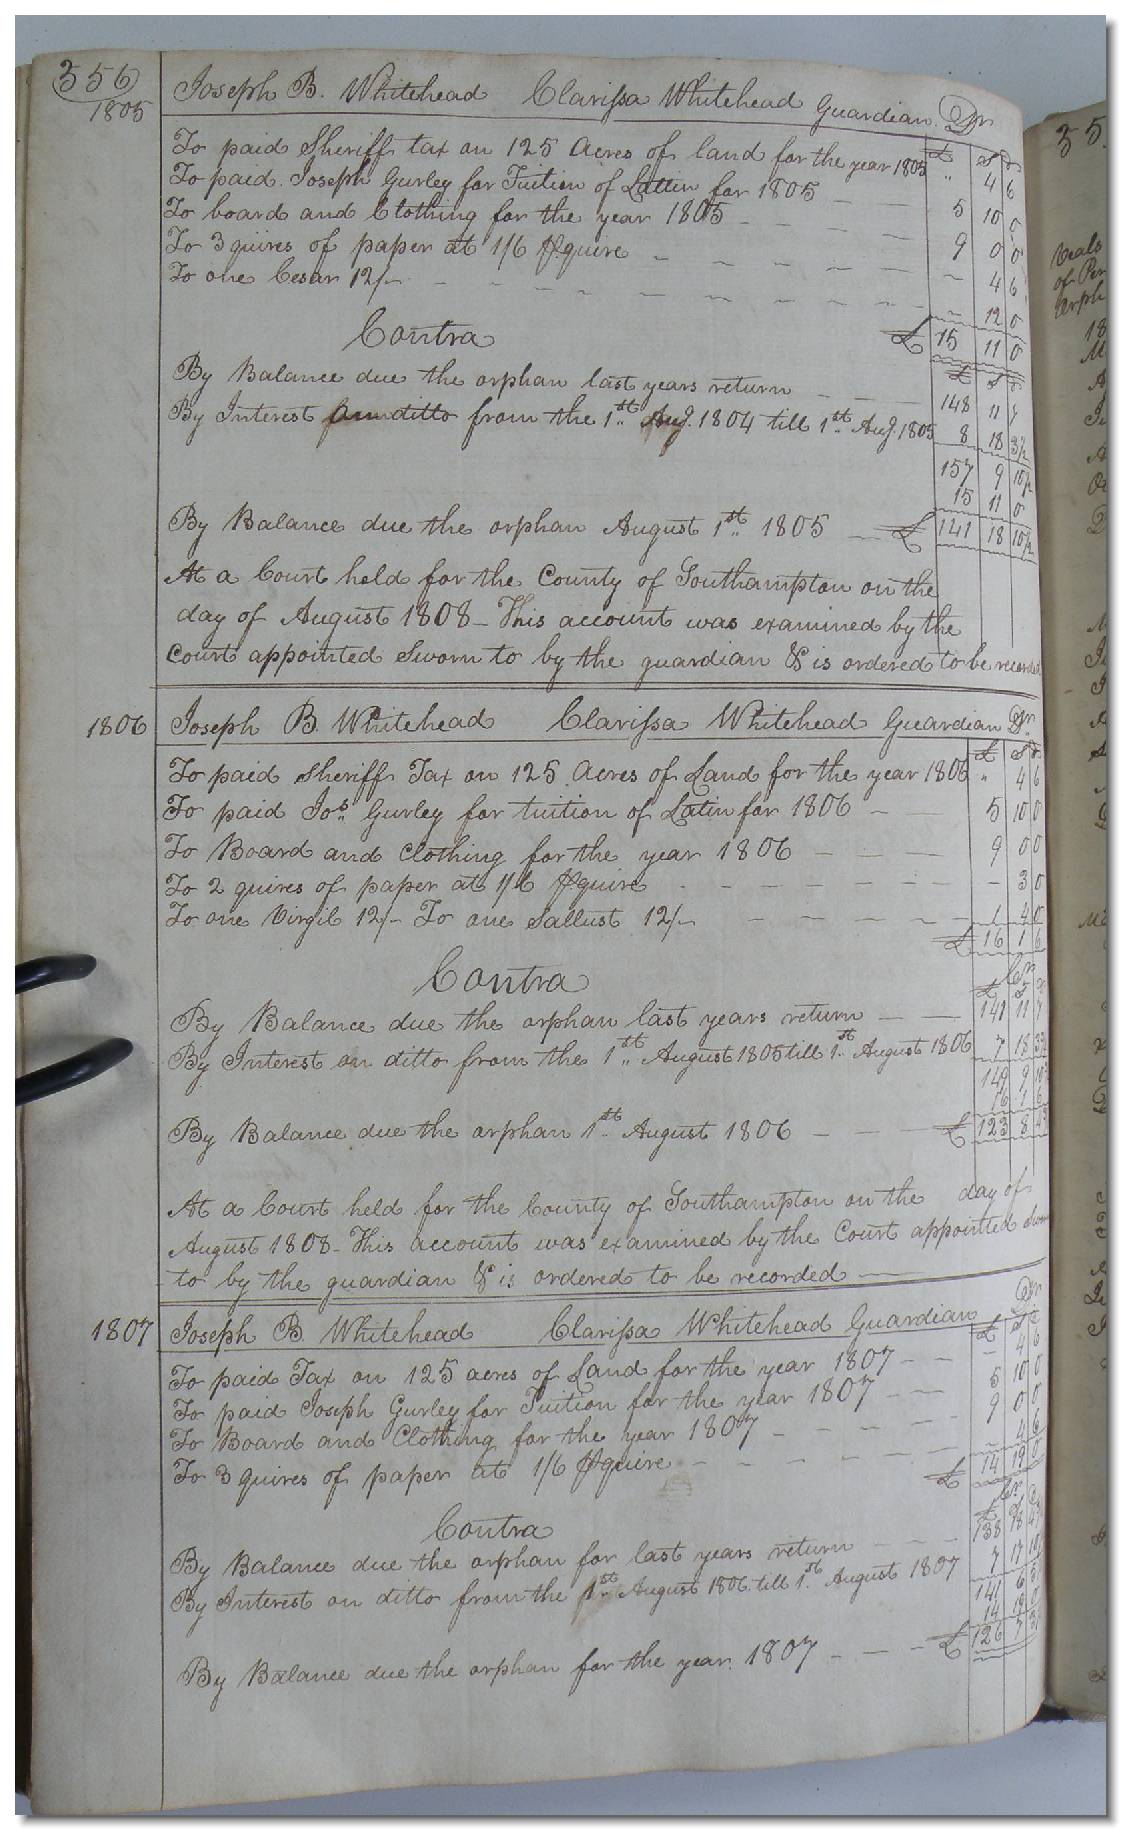 356
1805
Joseph B. Whitehead Clarissa Whitehead Guardian Dr
£ S D
To paid Sheriff tax on 125 Acres of land for the year 1805 " 4 6
To paid Joseph Gurley for Tuition of Lattin for 1805 5 10 0
To board and Clothing for the year 1805 9 0 0
To 3 quires of paper at 1/6 ⅌ quire 4 6
To one Cesar 12/- 12 0
£ 15 11 0
Contra
£ S D
By Balance due the orphan last years return 148 11 7
By Interest ditto from the 1st Aug. 1804 till 1st Aug. 1805 8 18 3½
157 9 10½
15 11 0
By Balance due the orphan August 1st 1805 £ 141 18 10½
At a Court held for the County of Southampton on the
day of August 1808 - This account was examined by the
Court appointed Sworn to by the guardian & is ordered to be recorded
1806 Joseph B. Whitehead Clarissa Whitehead Guardian Dr.
£ S D
To paid Sheriff Tax on 125 Acres of Land for the year 1806 " 4 6
To paid Jos. Gurley for tuition of Latin for 1806 5 10 0
To Board and Clothing for the year 1806 9 0 0
To 2 quires of paper at 1/6 ⅌ quire - 3 0
To one Virgil 12/- To one Sallust 12/- 1 4 0
£ 16 1 6
Contra Cr
£ S D
By Balance due the orphan last years return 141 11 7
By Interest on ditto from the 1st August 1805 till 1st August 1806 7 18 3½
149 9 10
16 1 6
By Balance due the orphan 1st August 1806 £ 123 8 4
At a Court held for the County of Southampton on the day of
August 1808 - This account was examined by the Court appointed Sworn
to by the guardian & is ordered to be recorded
1807 Joseph B. Whitehead Clarissa Whitehead Guardian Dr
£ S D
To paid Tax on 125 acres of Land for the year 1807 - 4 6
To paid Joseph Gurley for Tuition for the year 1807 5 10 0
To Board and Clothing for the year 1807 9 0 0
To 3 quires of paper at 1/6 ⅌ quire 4 6
£ 14 19 0
Contra Cr
By Balance due the orphan for last years return 138
By Interest on ditto from the 1st August 1806 till 1st August 1807 7 17 10
141 6
14 19 0
By Balance due the orphan for the year 1807 £ 126 7
35
of Per
Orph
18